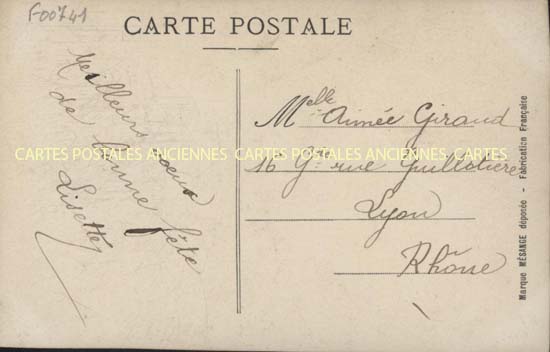 F00741
CARTE POSTALE
Meilleurs voeux
de bonne fête
Lisette
Melle Aimée Giraud
16 Gde rue Guillotière
Lyon
Rhône
CARTES POSTALES ANCIENNES CARTES POSTALES ANCIENNES CARTES
Marque MÉSANGE déposée - Fabrication Française